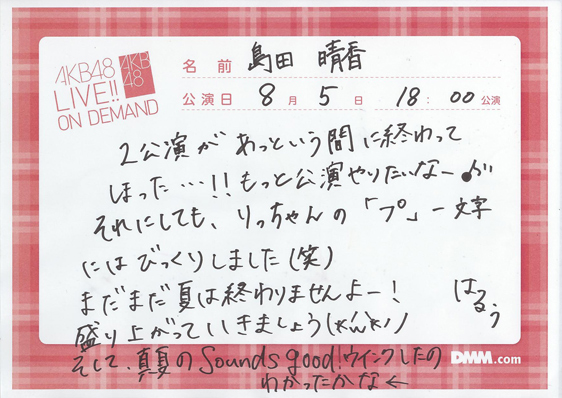 AKB48
LIVE!!
ON DEMAND
AKB
48
名前 島田 晴香
公演日 8月 5日 18:00公演
2公演があっという間に終わって
しまった…!!もっと公演やりたいなー♪
それにしても、りっちゃんの「プ」一文字
にはびっくりしました(笑)
まだまだ夏は終わりませんよー!
盛り上がっていきましょう
はるぅ
そして、真夏のSounds good!ウインクしたの
わかったかな←
DMM.com